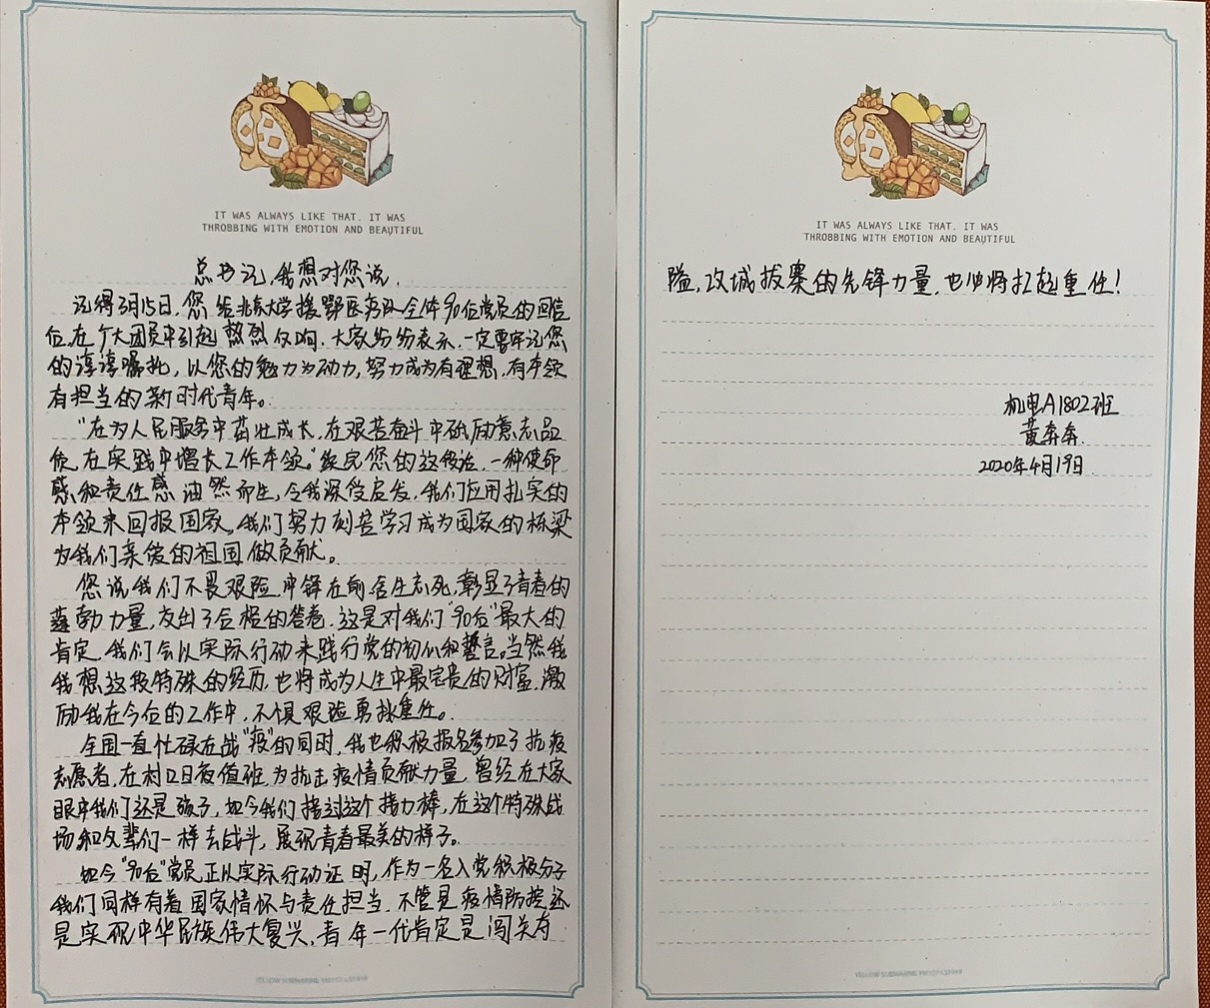 IT WAS ALWAYS LIKE THAT. IT WAS
THROBBING WITH EMOTION AND BEAUTIFUL
总书记,我想对您说.
记得3月15日,您给北京大学援鄂医疗队全体90后党员的回信
在广大团员中引起热烈反响.大家纷纷表示.一定要牢记您
的谆谆嘱托,以您的勉力为动力,努力成为有理想.有本领
有担当的新时代青年。
"在为人民服务中茁壮成长.在艰苦奋斗中砥砺意志品
质.在实践中增长工作本领."读完您的这段话.一种使命
感和责任感油然而生,令我深受启发.我们应用扎实的
本领来回报国家。我们努力刻苦学习成为国家的栋梁
为我们亲爱的祖国做贡献。
您说我们不畏艰险.冲锋在前.舍生忘死,彰显了青春的
蓬勃力量,交出了合格的答卷.这是对我们"90后"最大的
肯定.我们会以实际行动来践行党的初心和誓言。当然我
我想这段特殊的经历,也将成为人生中最宝贵的财富.激
励我在今后的工作中,不惧艰险勇挑重任。
全国一直忙碌在战"疫"的同时,我也积极报名参加了抗疫
志愿者,在村口日夜值班.为抗击疫情贡献力量,曾经在大家
眼中我们还是孩子,如今我们接过这个接力棒,在这个特殊战
场.和父辈们一样去战斗,展现青春最美的样子。
如今"90后"党员正以实际行动证明,作为一名入党积极分子
我们同样有着国家情怀与责任担当.不管是疫情防控还
是实现中华民族伟大复兴,青年一代肯定是闯关夺
IT WAS ALWAYS LIKE THAT. IT WAS
THROBBING WITH EMOTION AND BEAUTIFUL
隘,攻城拔寨的先锋力量,也必将扛起重任!
机电A1802班
黄奔奔.
2020年4月19日